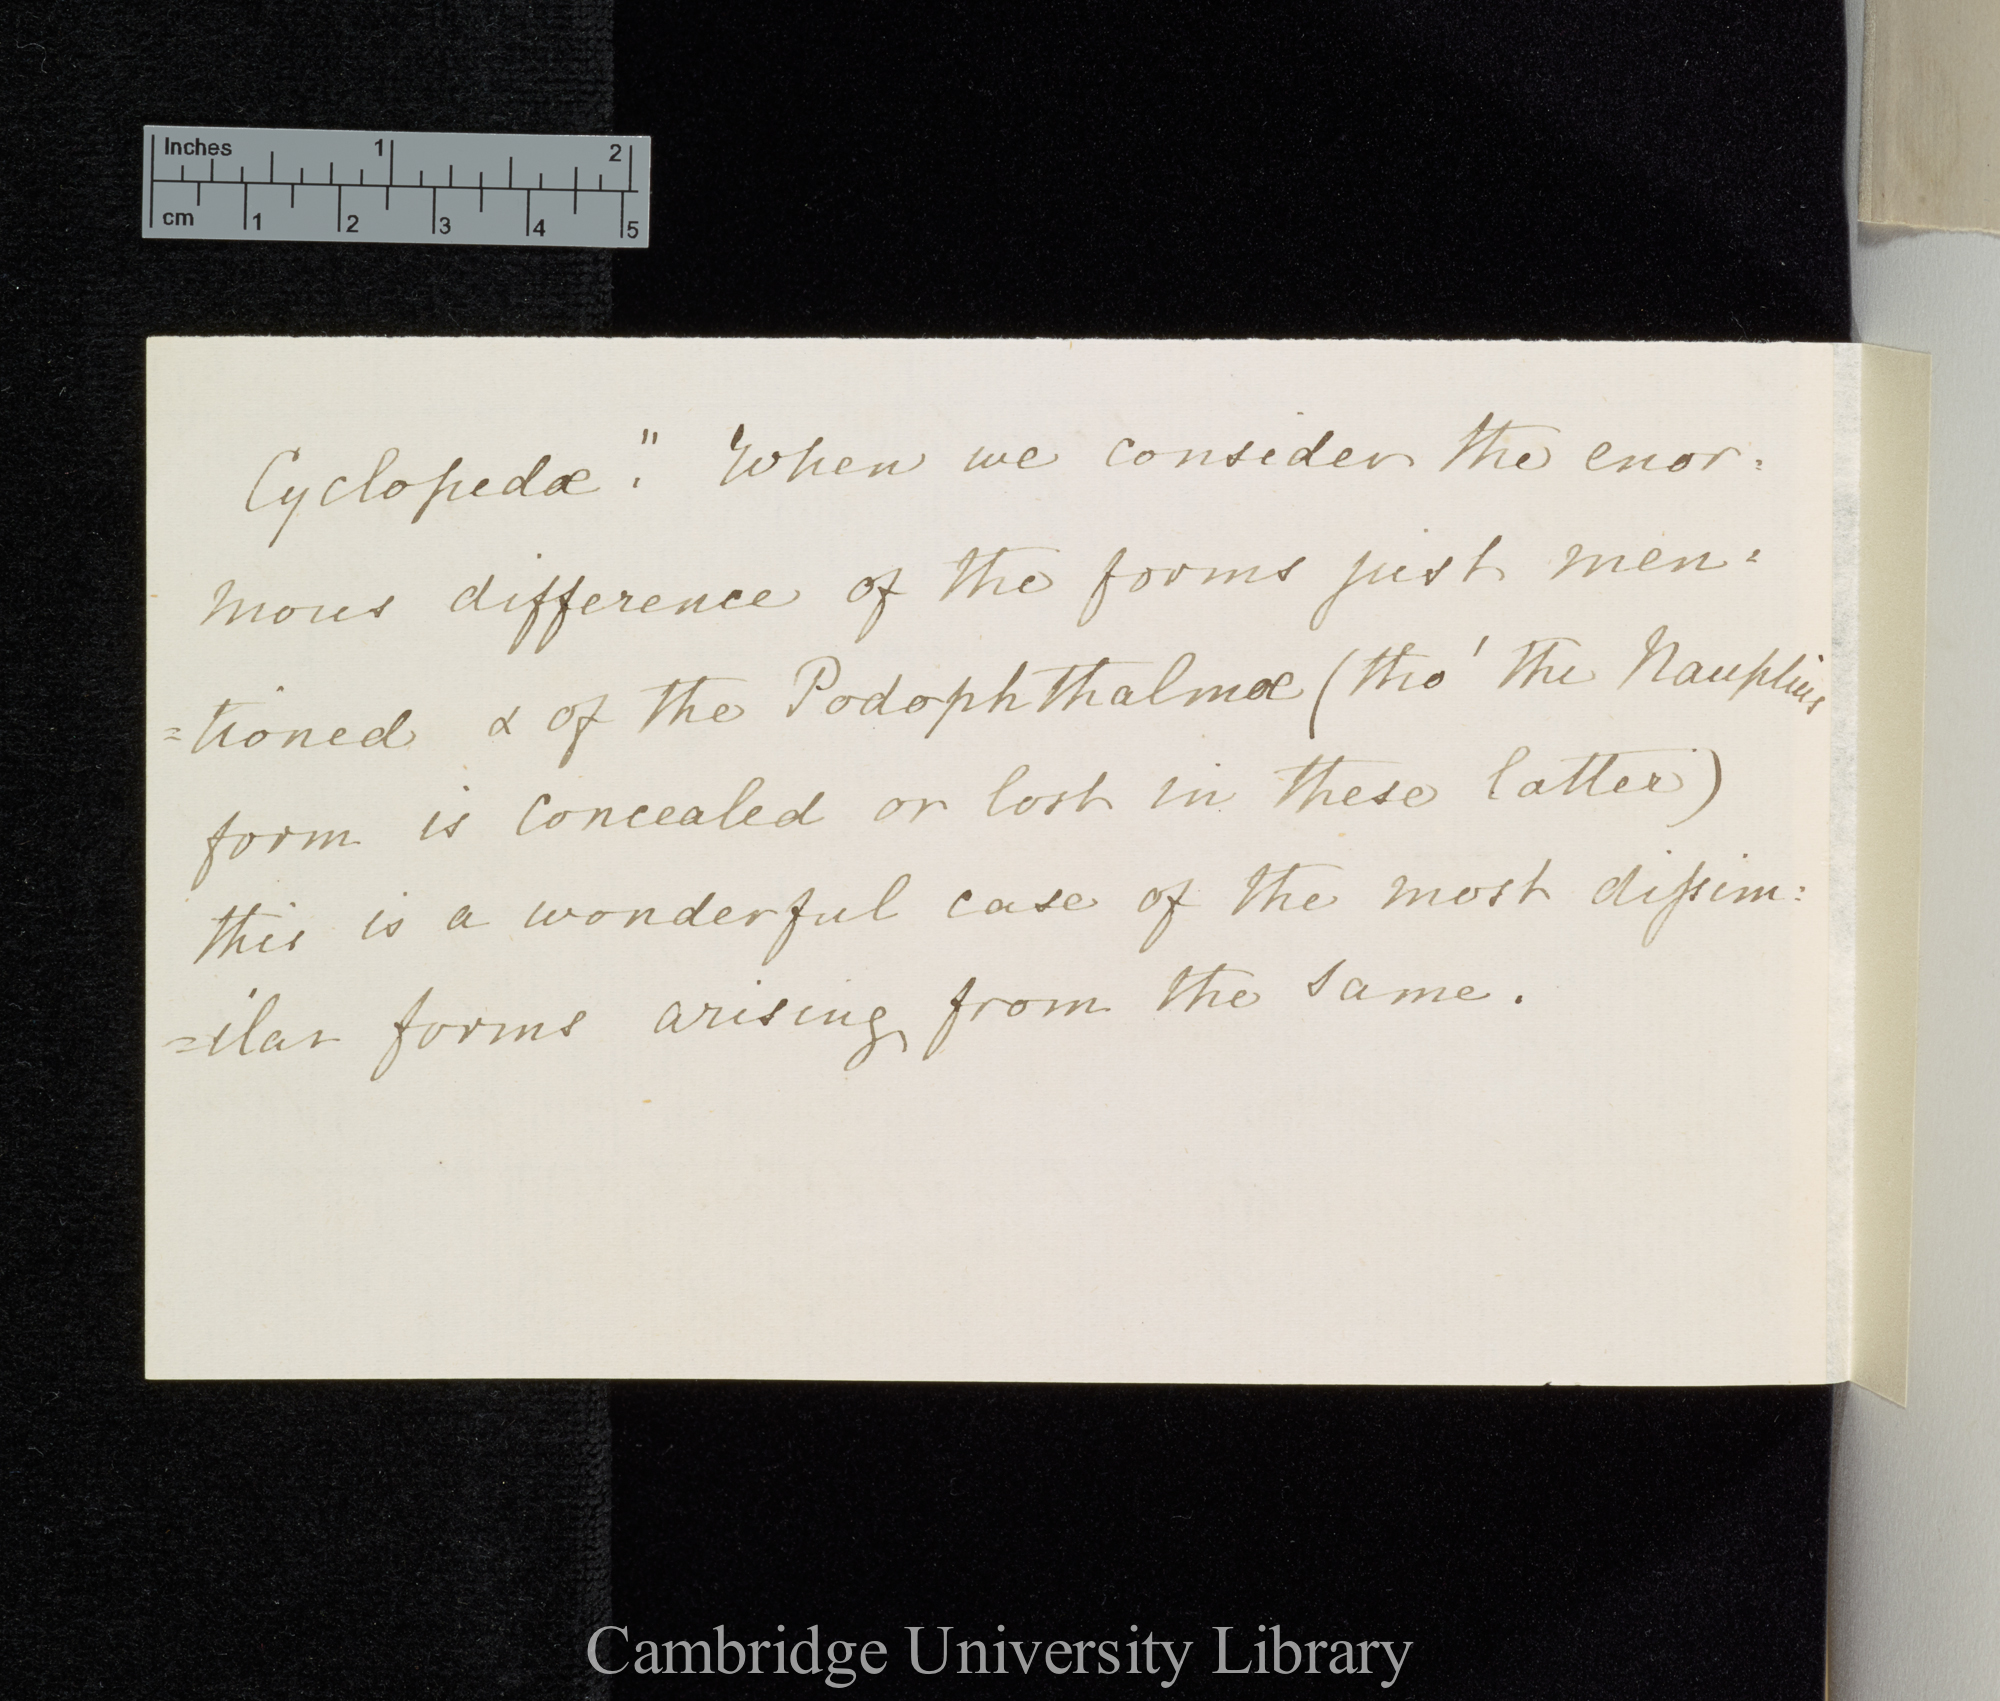 Inches 1 2
cm 1 2 3 4 5
Cyclopedæ." When we consider the enor:
mous difference of the forms just men:
=tioned & of the Podophthalmæ (tho' the Nauplius
form is concealed or lost in these latter)
this is a wonderful case of the most dissim:
=ilar forms arising from the same.
Cambridge University Library